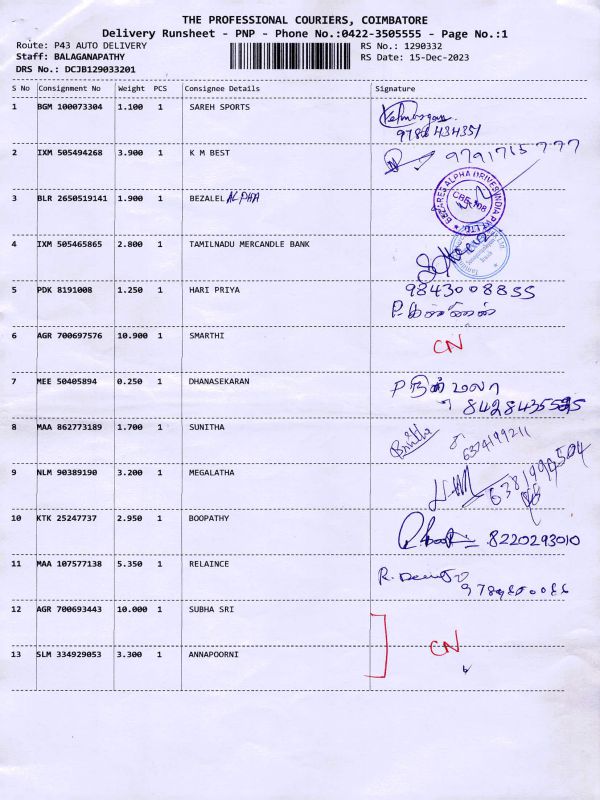 THE PROFESSIONAL COURIERS, COIMBATORE
Delivery Runsheet - PNP - Phone No.:0422-3505555 - Page No.:1
Route: P43 AUTO DELIVERY RS No.: 1290332
Staff: BALAGANAPATHY RS Date: 15-Dec-2023
DRS No.: DCJB129033201
S No Consignment No Weight PCS Consignee Details Signature
1 BGM 100073304 1.100 1 SAREH SPORTS
2 IXM 505494268 3.900 1 K M BEST 9791715777
3 BLR 2650519141 1.900 1 BEZALEL ALPHA
4 IXM 505465865 2.800 1 TAMILNADU MERCANDLE BANK
5 PDK 8191008 1.250 1 HARI PRIYA 9843008855
6 AGR 700697576 10.900 1 SMARTHI CN
7 MEE 50405894 0.250 1 DHANASEKARAN
8 MAA 862773189 1.700 1 SUNITHA 6374199211
9 NLM 90389190 3.200 1 MEGALATHA
10 KTK 25247737 2.950 1 BOOPATHY 8220293010
11 MAA 107577138 5.350 1 RELAINCE
12 AGR 700693443 10.000 1 SUBHA SRI
CN
13 SLM 334929053 3.300 1 ANNAPOORNI